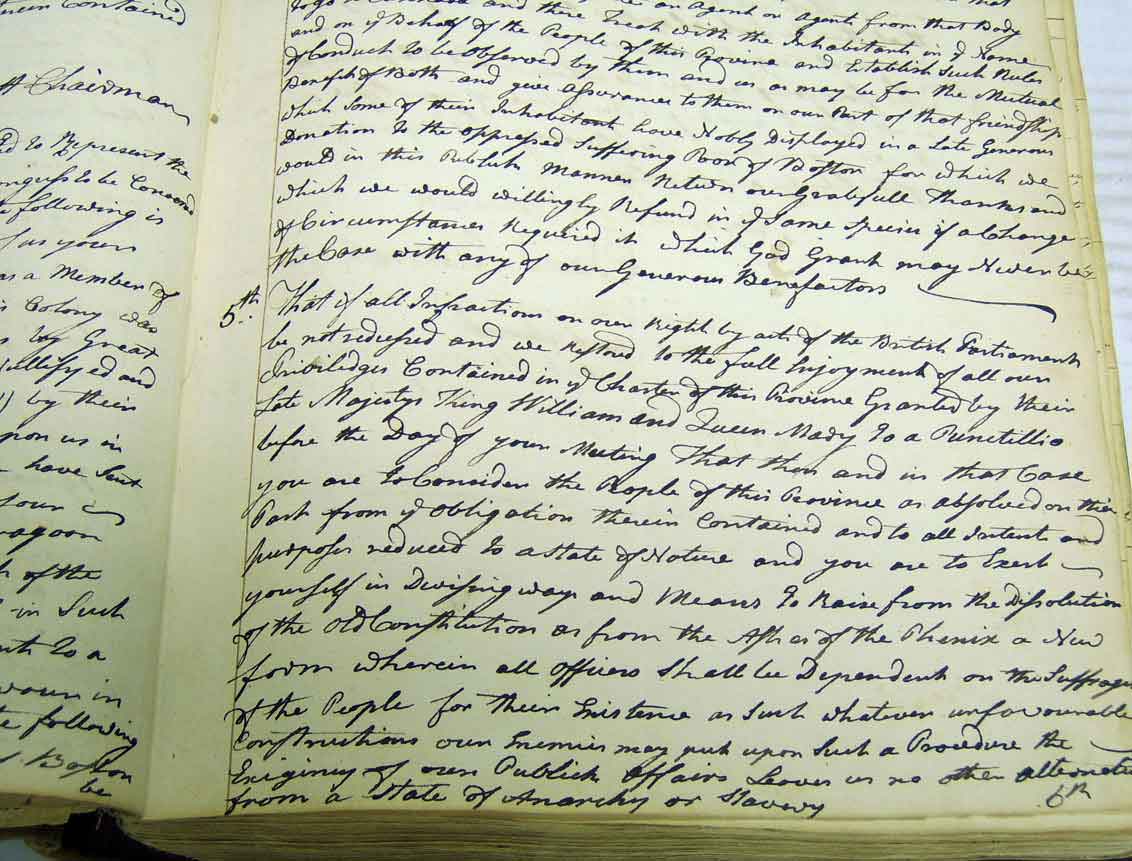 therein Contained
Chairman
Ed to Represent the
Congress to be Convened
following is
as yours
as a Member of
Colony was
by Great
and
by their
upon us in
have Sent
your
of the
in Such
to a
in
following
Boston
be
to go to and there Treat with the Inhabitants in ye Name
an Agent or Agents from that Body
and on ye Behalf of the People of this Province and Establish Such Rules
of Conduct to be Observed by them and us as may be for the Mutual
Benefit of Both and give assurance to them on our Part of that friendship
which Some of their Inhabitants have Nobly Displayed in a Late Generous
Donation to the oppressed Suffering Poor of Boston for which we
would in this Publick manner Return our Gratefull Thanks and
which we would willingly Refund in ye Same Species if a Change
of Circumstances Required it which God Grant may Never be
the Case with any of our Generous Benefactors
5th. That if all Infractions on our Right by acts of the British Parliament
be not redressed and we restored to the full Injoyment of all our
Priviledges Contained in ye Charter of this Province Granted by their
Late Majestys King William and Queen Mary to a Punctillio
before the Day of your Meeting That then and in that Case
you are to Consider the People of this Province as absolved on their
Part from ye obligation therein Contained and to all Intents and
purposes reduced to a State of Nature and you are to Exert
yourself in Devising ways and Means to Raise from the Dissolution
of the old Constitution as from the Ashes of the Phenix a New
form wherein all officers Shall be Dependent on the Suffrages
of the People for their Existence as Such whatever unfavourable
Constructions our Enemies may put upon Such a Procedure the
Exigincy of our Publick affairs Leaves us no other alternative
from a State of Anarchy or Slavery
6th